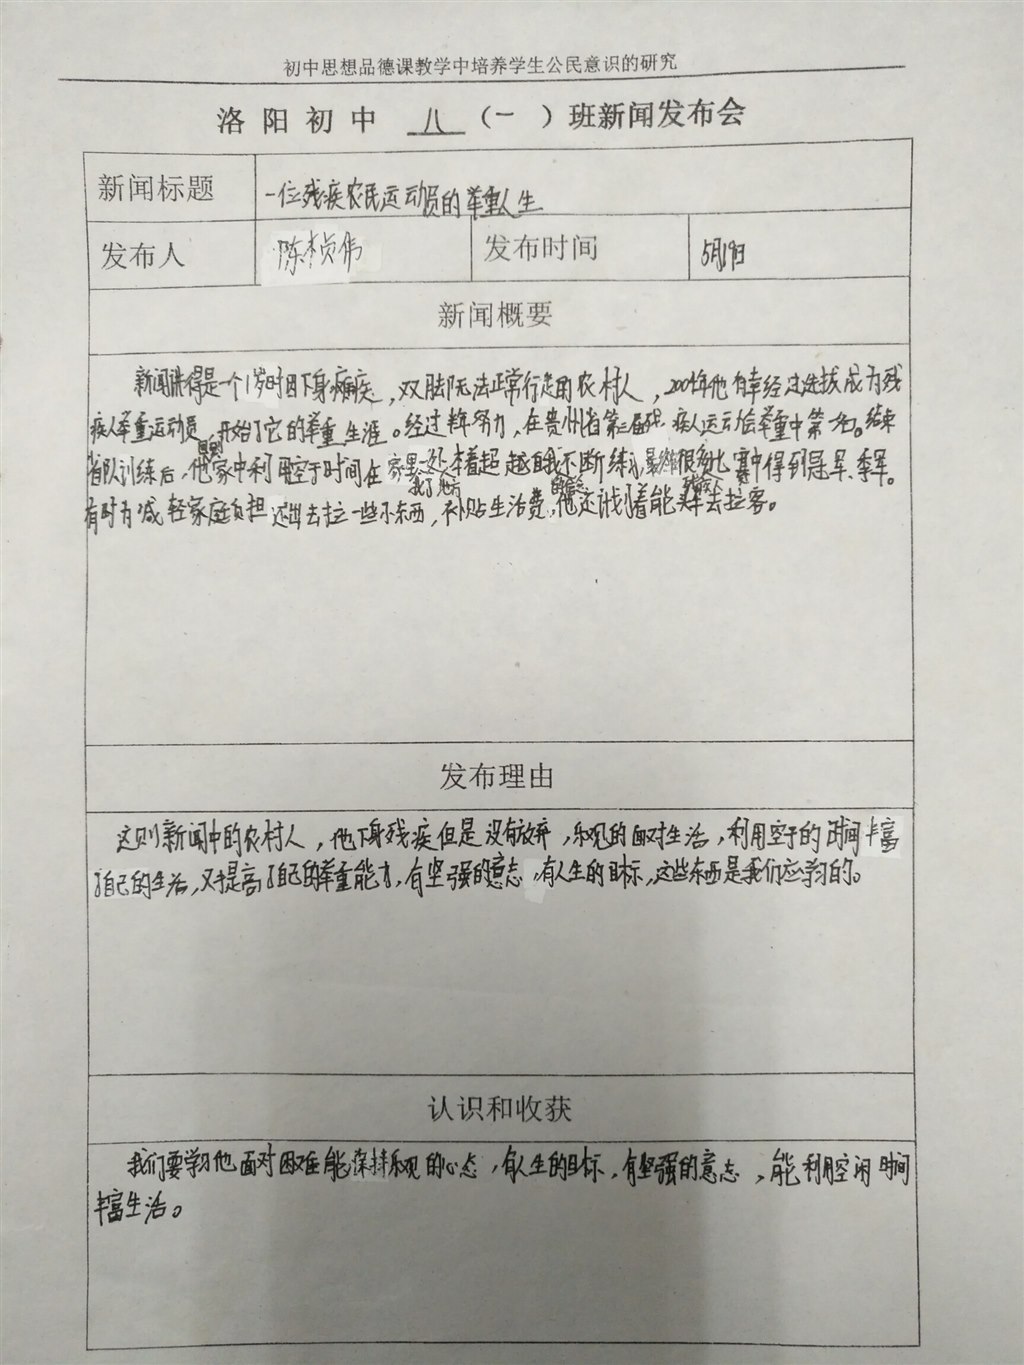 初中思想品德课教学中培养学生公民意识的研究
洛阳初中 八 （一）班新闻发布会
新闻标题 一位残疾农民运动员的举重人生
发布人 陈桢伟 发布时间 5月19日
新闻概要
新闻讲得是一个1岁时因下身瘫痪，双脚无法正常行走的农村人，200年他有幸经过选拔成为残
疾人举重运动员，开始了它的举重生涯。经过半年努力，在贵州省第三届残疾人运动会举重中第一名。结束
省队训练后，他回到家中利用空于时间在家里 本着超越自我 不断练习 最终很多比赛中得到冠军、季军。
有时为减轻家庭负担还出去拉一些小东西，补贴生活费，他还计划着能买车去拉客。
发布理由
这则新闻中的农村人，他下身残疾但是没有放弃，乐观的面对生活，利用空于的时间丰富
了自己的生活，又提高了自己的举重能力，有坚强的意志，有人生的目标，这些东西是我们应学习的。
认识和收获
我们要学习他面对困难能保持乐观的心态，有人生的目标，有坚强的意志，能利用空闲时间
丰富生活。